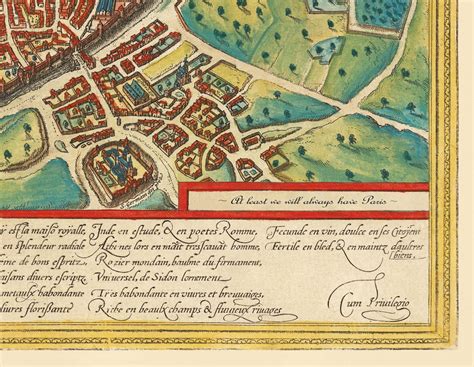 ~ At least we will always have Paris ~
est la maiso royalle,
en splendeur radiale
de bons espritz
divers escriptz
habondante
viures florissante
Inde en estude, & en poetes Romme,
lors en homme,
Rozier mondain, baulme du firmament,
Vniversel, de Sidon lornement
Tres habondante en viures et breuuaiges,
Riche en beaulx champs & riuages
Fecunde en vin, doulce en ses Citoyens
Fertile en bled, & en maintz
biens.
Cum Privilegio